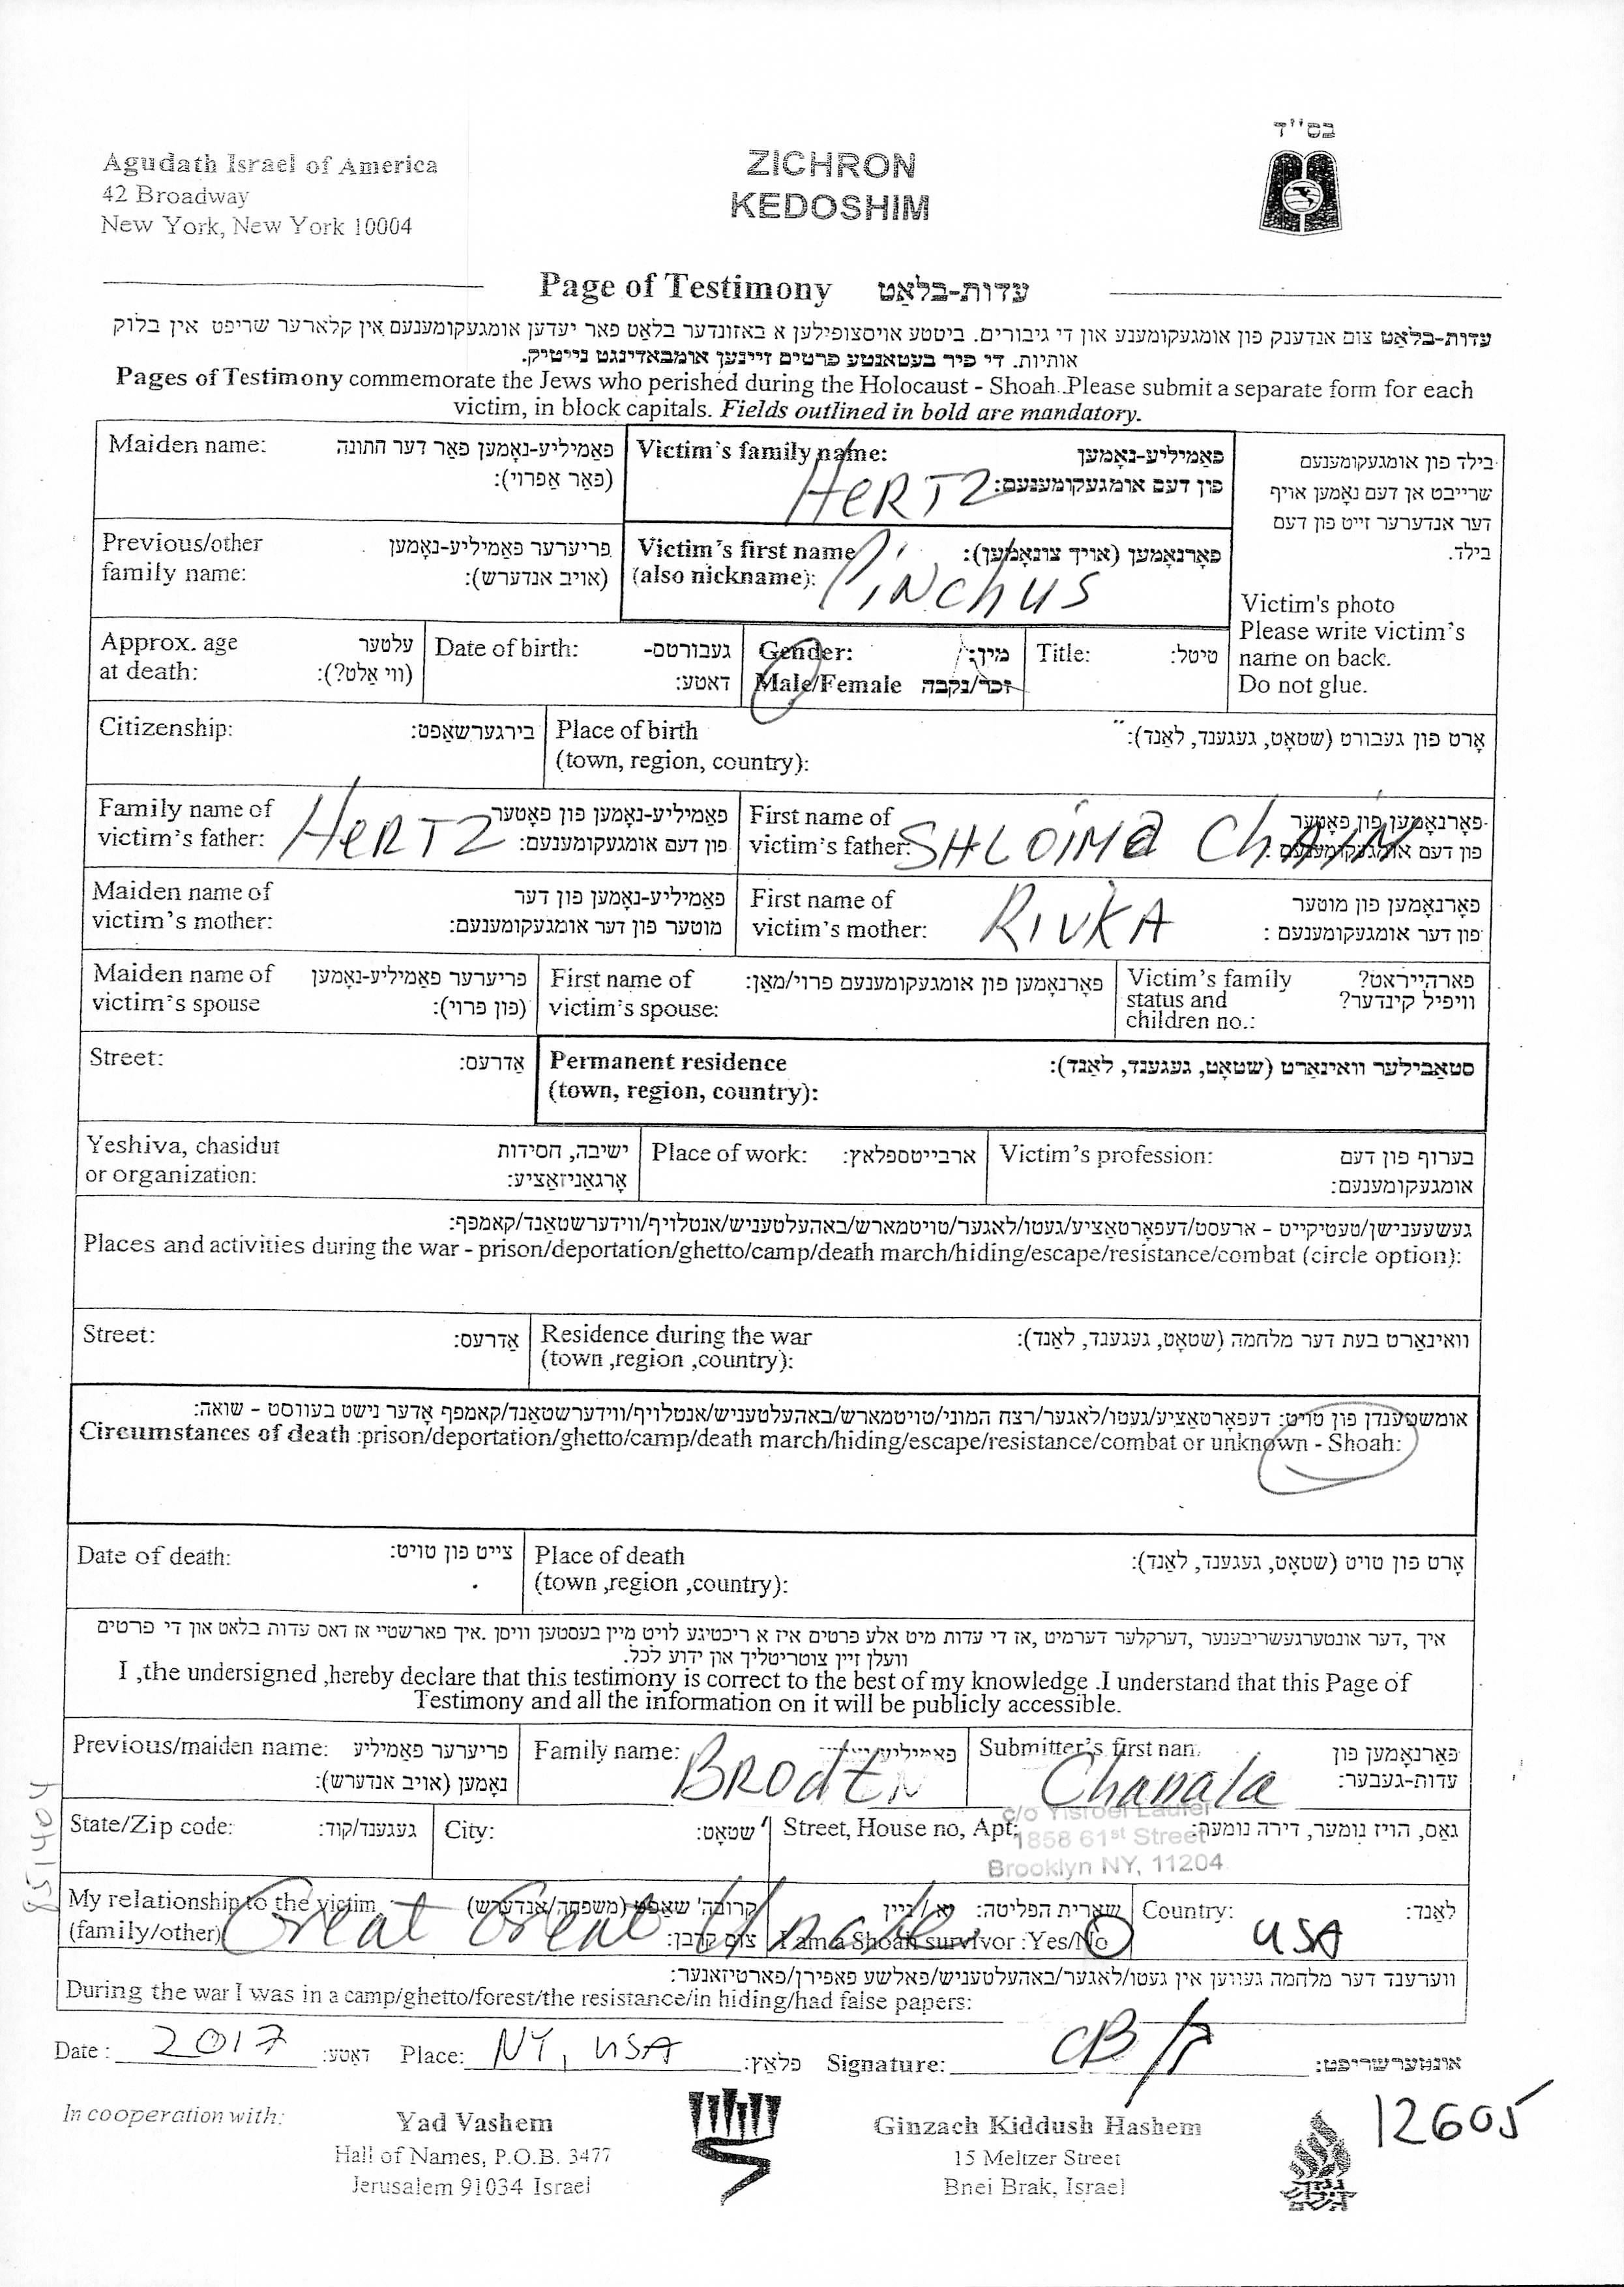 בס''ד
Agudath Israel of America
42 Broadway
New York, New York 10004
ZICHRON
KEDOSHIM
Page of Testimony עדות-בלאַט
עדות-בלאַט צום אנדענק פון אומגעקומענע און די גיבורים. ביטטע אויסצופילען א באזונדער בלאט פאר יעדען אומגעקומענעם אין קלארער שריפט אין בלוק
אותיות. די פיר בעטאנטע פרטים זיינען אומבאדינגט נייטיק.
Pages of Testimony commemorate the Jews who perished during the Holocaust - Shoah. Please submit a separate form for each
victim, in block capitals. Fields outlined in bold are mandatory.
Maiden name: פאַמיליע-נאָמען פאַר דער חתונה
(פאַר אַפרוי):
Victim's family name: פאַמיליע-נאָמען
פון דעם אומגעקומענעם:
HERTZ
בילד פון אומגעקומענעם
שרייבט אן דעם נאָמען אויף
דער אנדערער זייט פון דעם
בילד.
Victim's photo
Please write victim's
name on back.
Do not glue.
Previous/other פריערער פאַמיליע-נאָמען
family name: (אויב אנדערש):
Victim's first name פאָרנאָמען (אויך צונאָמען):
(also nickname):
Pinchus
Approx. age עלטער
at death: (ווי אַלט?):
Date of birth: געבורטס-
דאטע:
Gender: מין:
Male/Female זכר/נקבה
Title: טיטל:
Citizenship: בירגערשאַפט:
Place of birth אָרט פון געבורט (שטאָט, געגענד, לאַנד):
(town, region, country):
Family name of פאַמיליע-נאָמען פון פאָטער
victim's father: פון דעם אומגעקומענעם:
HERTZ
First name of פאָרנאָמען פון פאָטער
victim's father: פון דעם אומגעקומענעם:
SHLOIMA CHAIM
Maiden name of פאַמיליע-נאָמען פון דער
victim's mother: מוטער פון דער אומגעקומענעם:
First name of פאָרנאָמען פון מוטער
victim's mother: פון דער אומגעקומענעם :
RIVKA
Maiden name of פריערער פאַמיליע-נאָמען
victim's spouse (פון פרוי):
First name of פאָרנאָמען פון אומגעקומענעם פרוי/מאַן:
victim's spouse:
Victim's family פארהייראט?
status and וויפיל קינדער?
children no.:
Street: אַדרעס:
Permanent residence סטאַבילער וואינאַרט (שטאָט, געגענד, לאַנד):
(town, region, country):
Yeshiva, chasidut ישיבה, חסידות
or organization: אָרגאַניזאַציע:
Place of work: ארבייטספלאץ:
Victim's profession: בערוף פון דעם
אומגעקומענעם:
געשעענישן/טעטיקייט - ארעסט/דעפאָרטאַציע/געטו/לאגער/טויטמארש/באהעלטעניש/אנטלויף/ווידערשטאַנד/קאמפף:
Places and activities during the war - prison/deportation/ghetto/camp/death march/hiding/escape/resistance/combat (circle option):
Street: אַדרעס:
Residence during the war וואינאַרט בעת דער מלחמה (שטאָט, געגענד, לאַנד):
(town ,region ,country):
אומשטענדן פון טויט: דעפאָרטאַציע/געטו/לאגער/רצח המוני/טויטמארש/באהעלטעניש/אנטלויף/ווידערשטאַנד/קאמפף אָדער נישט בעוווסט - שואה:
Circumstances of death :prison/deportation/ghetto/camp/death march/hiding/escape/resistance/combat or unknown - Shoah:
Date of death: צייט פון טויט:
Place of death אָרט פון טויט (שטאָט, געגענד, לאַנד):
(town ,region ,country):
איך ,דער אונטערגעשריבענער ,דערקלער דערמיט ,אז די עדות מיט אלע פרטים איז א ריכטיגע לויט מיין בעסטען וויסן .איך פארשטיי אז דאס עדות בלאט און די פרטים
וועלן זיין צוטריטליך און ידוע לכל.
I ,the undersigned ,hereby declare that this testimony is correct to the best of my knowledge .I understand that this Page of
Testimony and all the information on it will be publicly accessible.
Previous/maiden name: פריערער פאַמיליע
נאָמען (אויב אנדערש):
Family name:
BRODEN
Submitter's first nan. פאַרנאָמען פון
עדות-געבער:
Chanala
State/Zip code: געגענד/קוד:
City: שטאָט:
Street, House no, Apt: גאַס, הויז נומער, דירה נומער:
c/o Yisroel Laufer
1858 61st Street
Brooklyn NY, 11204
My relationship to the victim קרובה'שאַפט (משפחה/אנדערש)
(family/other) צום קרבן:
Great Great Uncle
שארית הפליטה: יא/ניין
I am a Shoah survivor :Yes/No
Country: לאַנד:
USA
ווערענד דער מלחמה געווען אין געטו/לאגער/באהעלטעניש/פאלשע פאפירן/פארטיזאנער:
During the war I was in a camp/ghetto/forest/the resistance/in hiding/had false papers:
Date : 2017 דאטע: Place: NY, USA פלאץ: Signature: CB אונטערשריפט:
In cooperation with:
Yad Vashem
Hall of Names, P.O.B. 3477
Jerusalem 91034 Israel
Ginzach Kiddush Hashem
15 Meltzer Street
Bnei Brak, Israel
12605